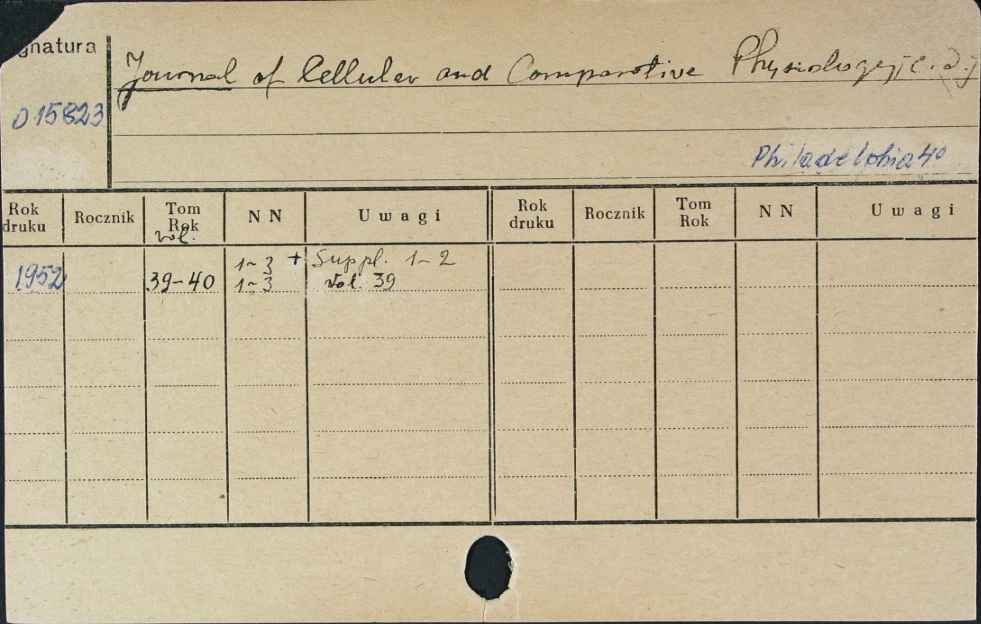 gnatura
Journal of Cellular and Comparative Physiology [c.d.]
015823
Philadelphia 40
Rok druku Rocznik Tom Rok NN Uwagi Rok druku Rocznik Tom Rok NN Uwagi
vol.
1-3 + Suppl. 1-2
1952 39-40 1-3 vol. 39